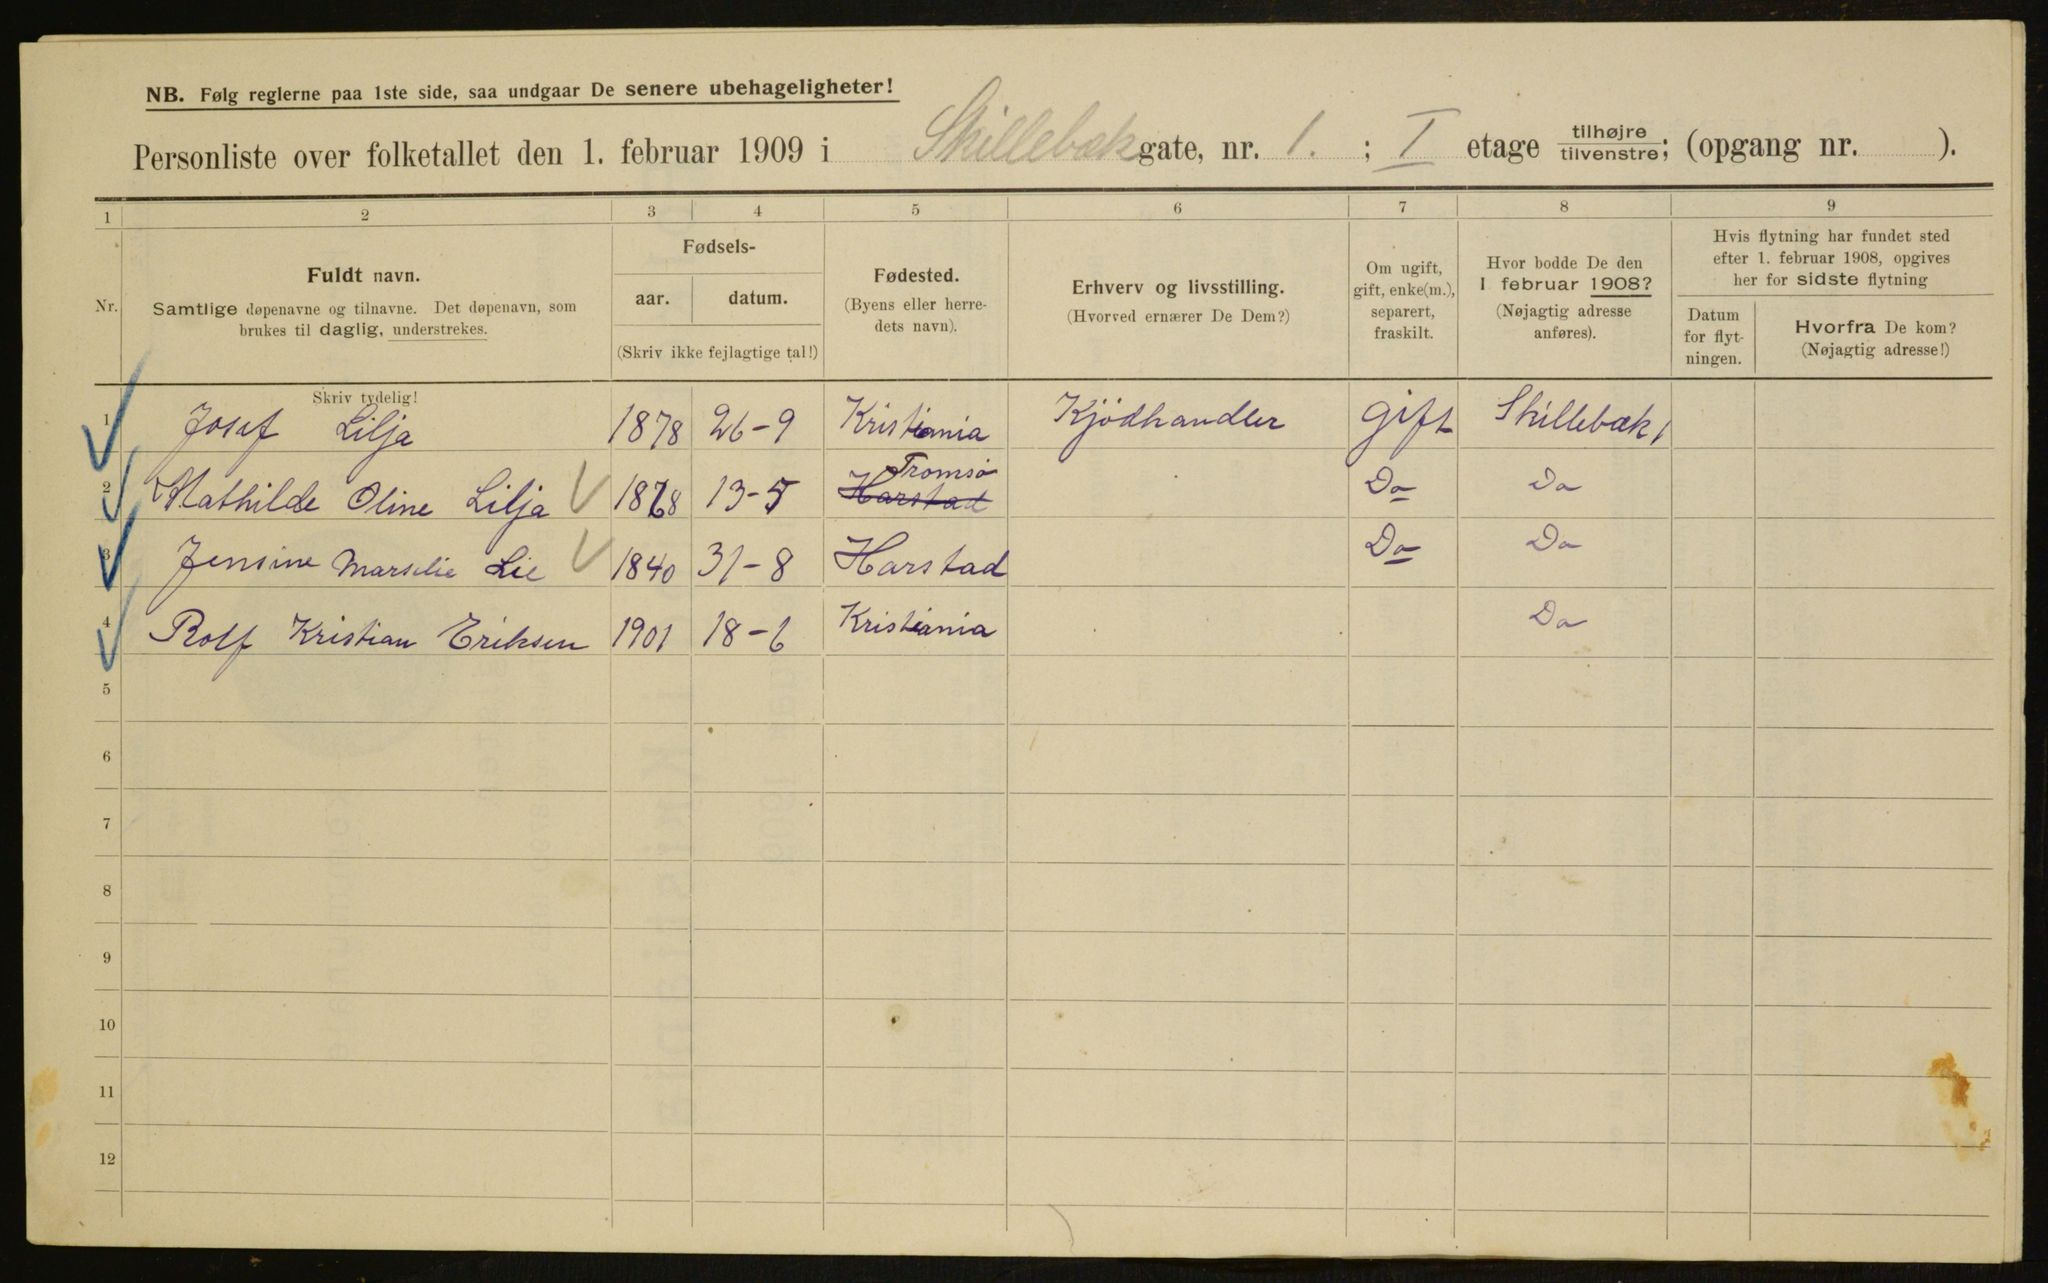 NB. Følg reglerne paa 1ste side, saa undgaar De senere ubehageligheter!
Personliste over folketallet den 1. februar 1909 i Skillebæk gate, nr. 1. ; I etage tilhøjre tilvenstre; (opgang nr. ).
1 2 3 4 5 6 7 8 9
Nr.
Fuldt navn.
Samtlige døpenavne og tilnavne. Det døpenavn, som
brukes til daglig, understrekes.
Skriv tydelig!
Fødsels-
aar. datum.
(Skriv ikke fejlagtige tal!)
Fødested.
(Byens eller herre-
dets navn).
Erhverv og livsstilling.
(Hvorved ernærer De Dem?)
Om ugift,
gift, enke(m.),
separert,
fraskilt.
Hvor bodde De den
1 februar 1908?
(Nøjagtig adresse
anføres).
Hvis flytning har fundet sted
efter 1. februar 1908, opgives
her for sidste flytning
Datum
for flyt-
ningen.
Hvorfra De kom?
(Nøjagtig adresse!)
1 Josef Lilja 1878 26-9 Kristiania Kjödhandler gift Skillebæk 1
2 Mathilde Oline Lilja 13-5 Harstad Tromsö Do Do
3 Jensine Marselie Lie 1840 31-8 Harstad Do Do
4 Rolf Kristian Eriksen 1901 18-6 Kristiania Do
5
6
7
8
9
10
11
12